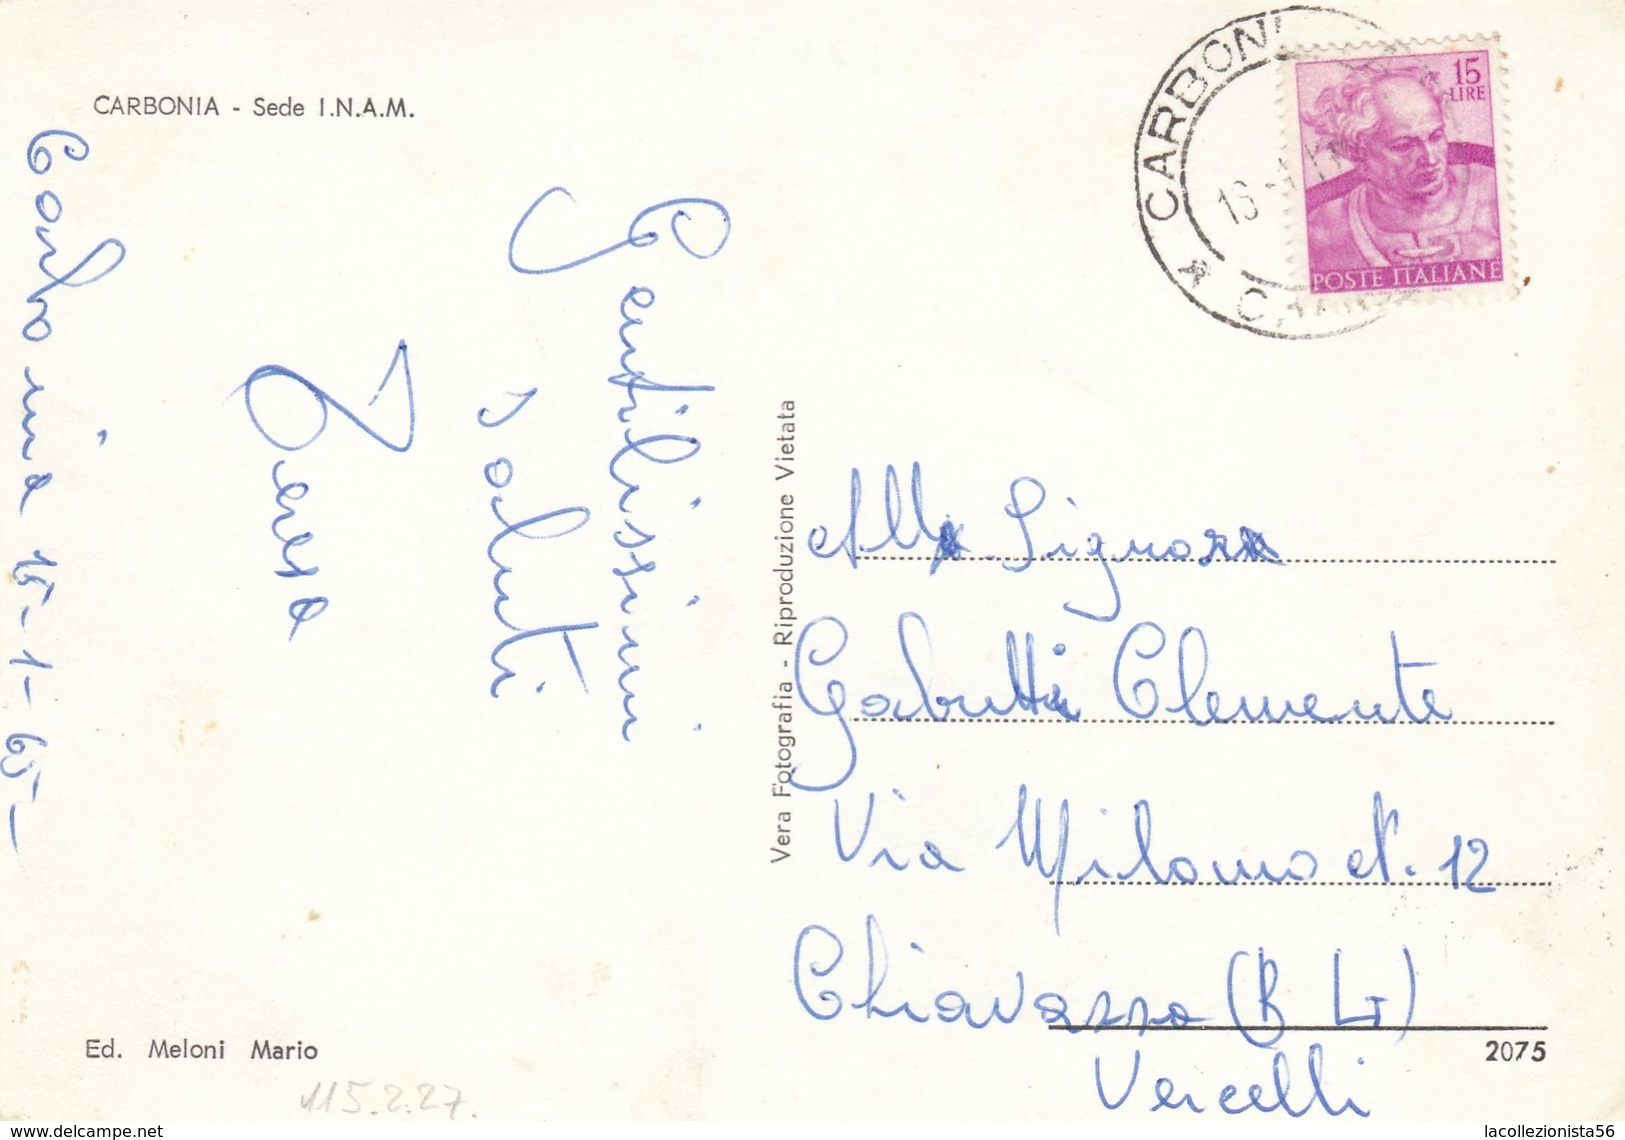 CARBONIA - Sede I.N.A.M.
Carbonia 15-1-65-
Gentilissimi
saluti
Teresa
Ed. Meloni Mario
115.2.27.
Vera Fotografia - Riproduzione Vietata
CARBONI
15
LIRE
POSTE ITALIANE
Alla Signora
Gabutti Clemente
Via Milano N. 12
Chiavazza (B
Vercelli
2075
delcampe.net
lacollezionista56